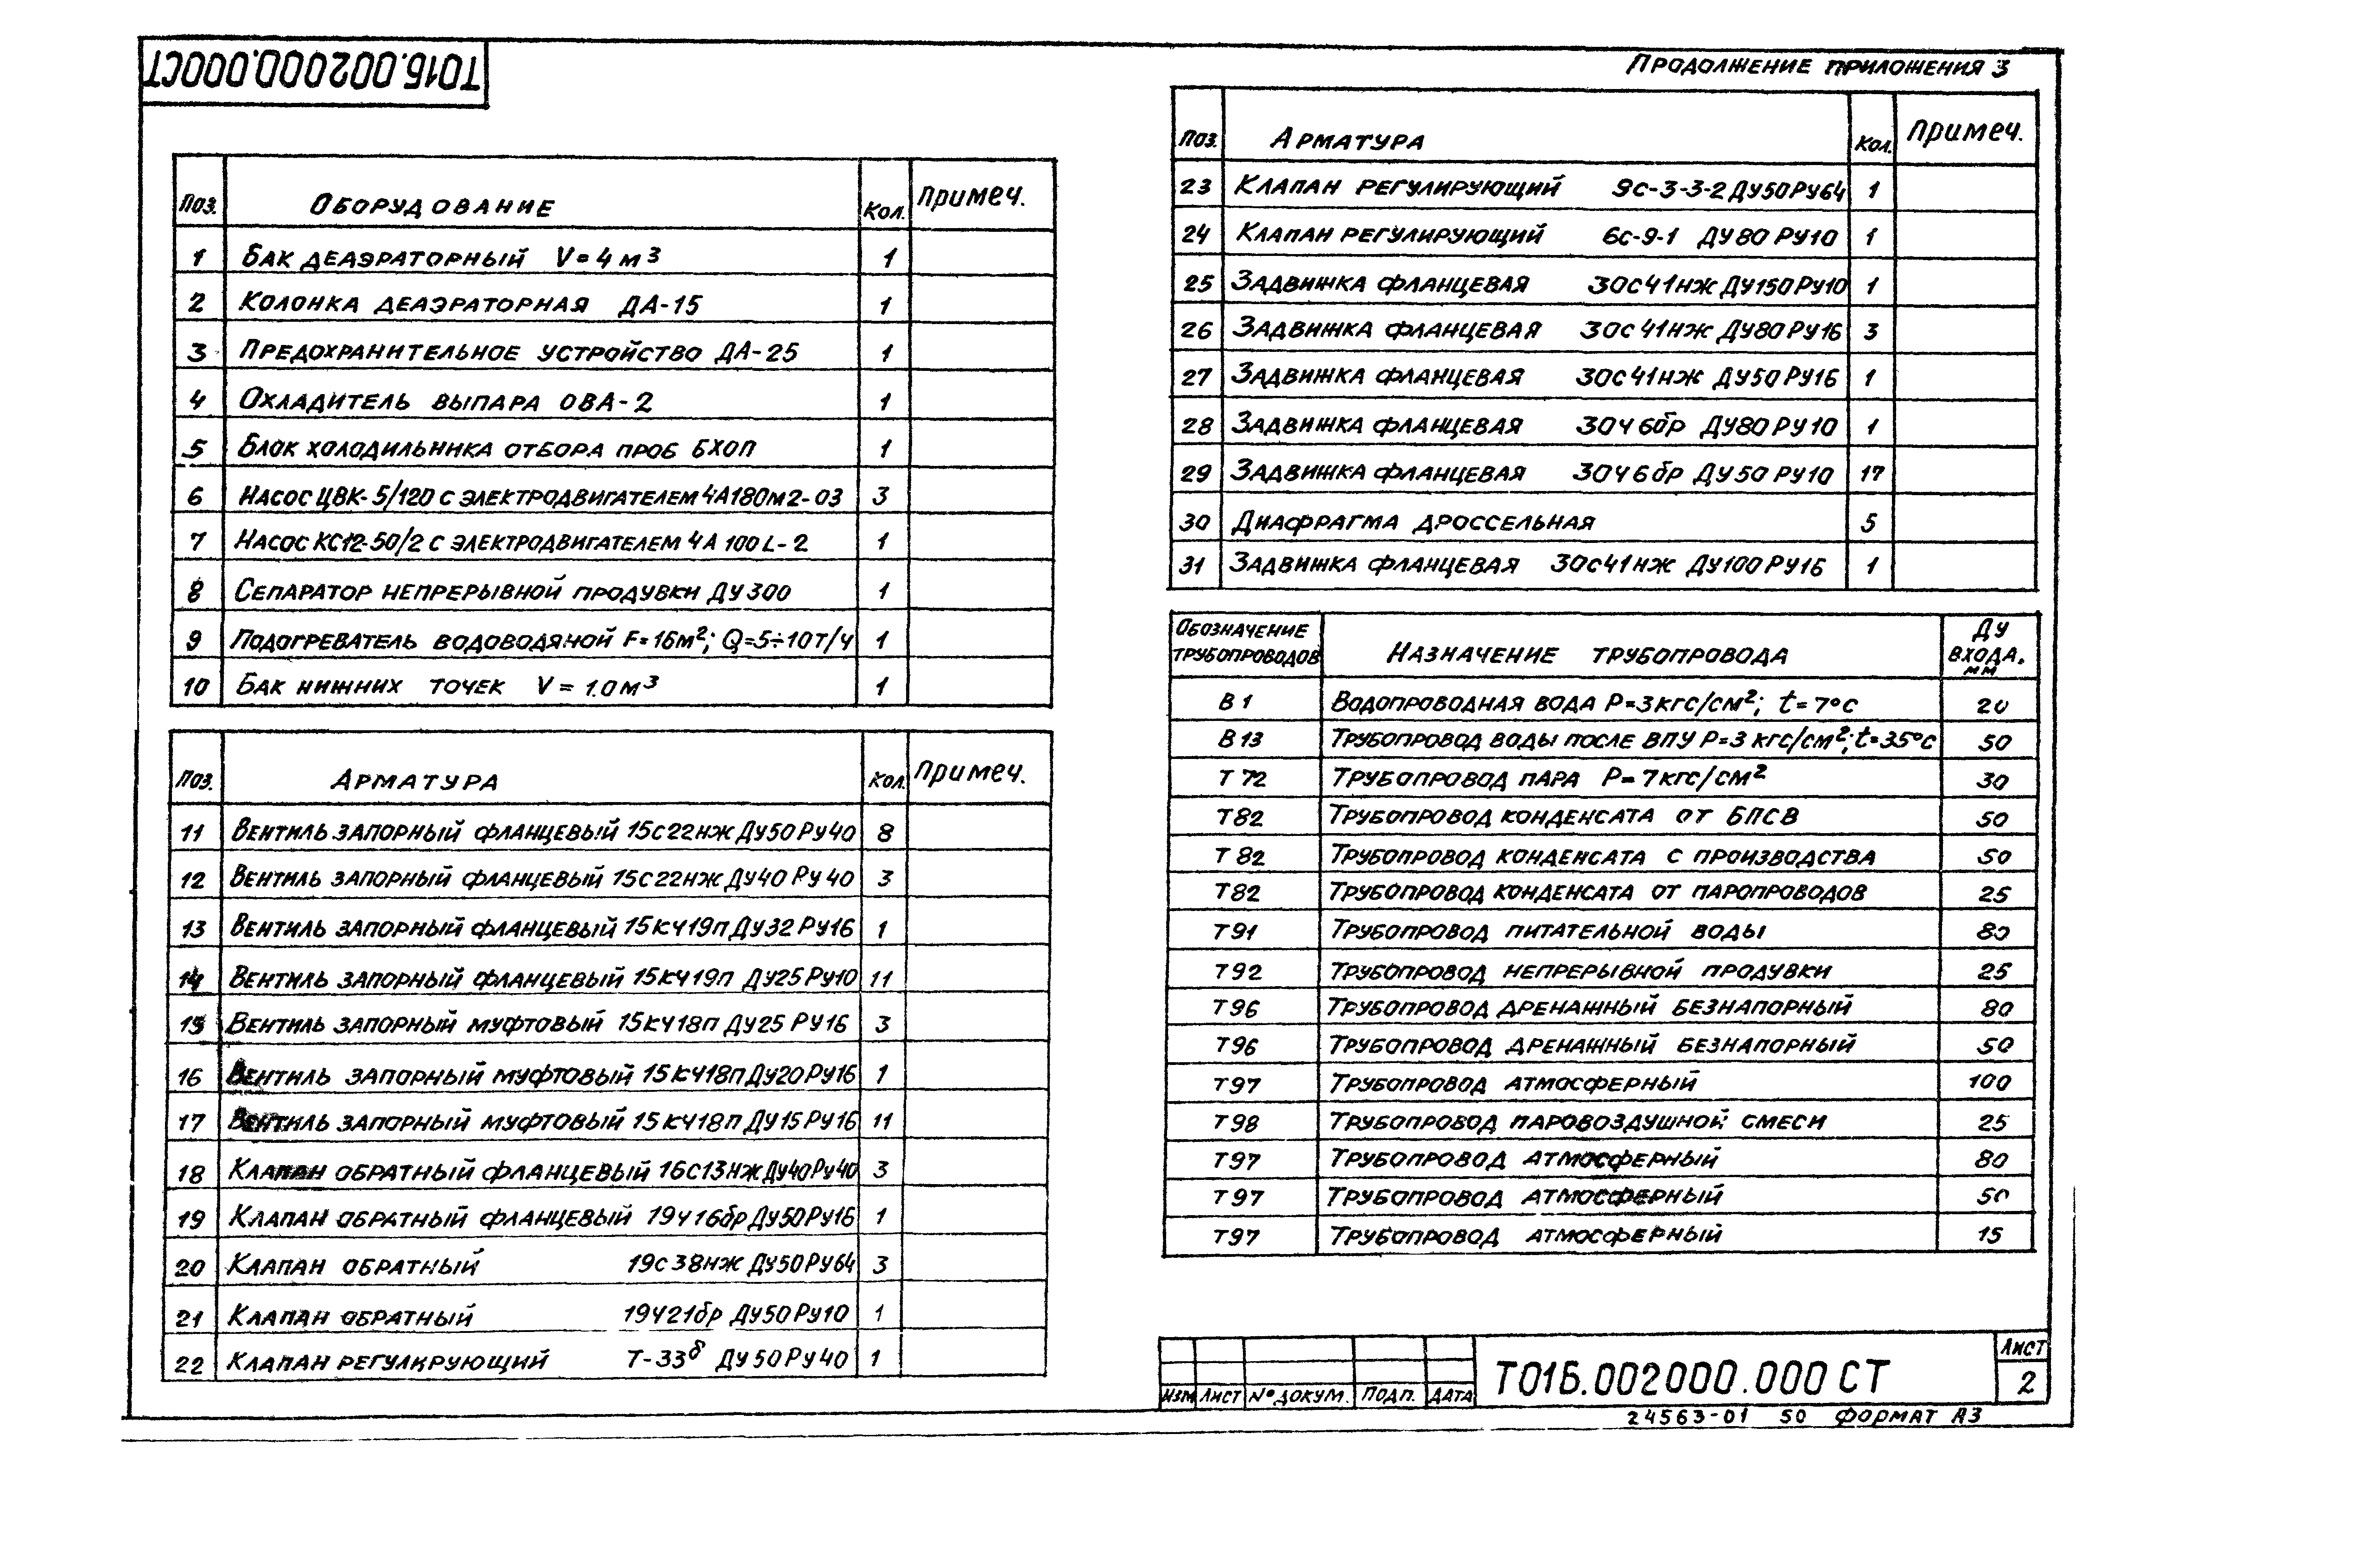 Т01Б.002000.000СТ
Продолжение приложения 3
Поз. Оборудование Кол. Примеч.
1 Бак деаэраторный V=4м³ 1
2 Колонка деаэраторная ДА-15 1
3 Предохранительное устройство ДА-25 1
4 Охладитель выпара ОВА-2 1
5 Блок холодильника отбора проб БХОП 1
6 Насос ЦВК-5/120 с электродвигателем 4А180М2-03 3
7 Насос КС12-50/2 с электродвигателем 4А 100L-2 1
8 Сепаратор непрерывной продувки Ду 300 1
9 Подогреватель водоводяной F=16м²; Q=5÷10т/ч 1
10 Бак нижних точек V=1.0м³ 1
Поз. Арматура Кол. Примеч.
11 Вентиль запорный фланцевый 15с22нж Ду50 Ру40 8
12 Вентиль запорный фланцевый 15с22нж Ду40 Ру40 3
13 Вентиль запорный фланцевый 15кч19п Ду32 Ру16 1
14 Вентиль запорный фланцевый 15кч19п Ду25 Ру10 11
15 Вентиль запорный муфтовый 15кч18п Ду25 Ру16 3
16 Вентиль запорный муфтовый 15кч18п Ду20 Ру16 1
17 Вентиль запорный муфтовый 15кч18п Ду15 Ру16 11
18 Клапан обратный фланцевый 16с13нж Ду40 Ру40 3
19 Клапан обратный фланцевый 19ч16бр Ду50 Ру16 1
20 Клапан обратный 19с38нж Ду50 Ру64 3
21 Клапан обратный 19ч21бр Ду50 Ру10 1
22 Клапан регулирующий Т-33б Ду50 Ру40 1
Поз. Арматура Кол. Примеч.
23 Клапан регулирующий 9с-3-3-2 Ду50 Ру64 1
24 Клапан регулирующий 6с-9-1 Ду80 Ру10 1
25 Задвижка фланцевая 30с41нж Ду150 Ру10 1
26 Задвижка фланцевая 30с41нж Ду80 Ру16 3
27 Задвижка фланцевая 30с41нж Ду50 Ру16 1
28 Задвижка фланцевая 30ч6бр Ду80 Ру10 1
29 Задвижка фланцевая 30ч6бр Ду50 Ру10 17
30 Диафрагма дроссельная 5
31 Задвижка фланцевая 30с41нж Ду100 Ру16 1
Обозначение трубопроводов Назначение трубопровода Ду входа, мм
В1 Водопроводная вода Р=3кгс/см²; t=7°С 20
В13 Трубопровод воды после ВПУ Р=3 кгс/см²; t=35°С 50
Т72 Трубопровод пара Р=7кгс/см² 30
Т82 Трубопровод конденсата от БПСВ 50
Т82 Трубопровод конденсата с производства 50
Т82 Трубопровод конденсата от паропроводов 25
Т91 Трубопровод питательной воды 80
Т92 Трубопровод непрерывной продувки 25
Т96 Трубопровод дренажный безнапорный 80
Т96 Трубопровод дренажный безнапорный 50
Т97 Трубопровод атмосферный 100
Т98 Трубопровод паровоздушной смеси 25
Т97 Трубопровод атмосферный 80
Т97 Трубопровод атмосферный 50
Т97 Трубопровод атмосферный 15
Изм Лист № докум. Подп. Дата
Т01Б.002000.000 СТ
Лист
2
24563-01 50 Формат А3